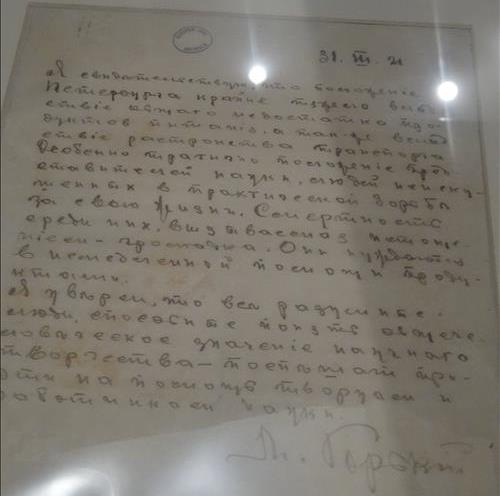 31. III. 21
Я свидетельствую, что положение
Петербурга крайне тяжело вслѣд-
ствіе общаго недостатка про-
дуктов питанія, а так-же вслѣд-
ствіе разстройства транспорта.
Особенно трагично положеніе пред-
ставителей науки, людей неиску-
шенных в практической борьбѣ
за свою жизнь. Смертность
среди них, вызываемая истоще-
ніем — громадна. Они нуждаются
в немедленной помощи проду-
ктами.
Я увѣрен, что всѣ разумные
люди, способные понять общече-
ловѣческое значеніе научнаго
творчества — поспѣшат при-
дти на помощь творцам и
работникам науки.
М. Горький